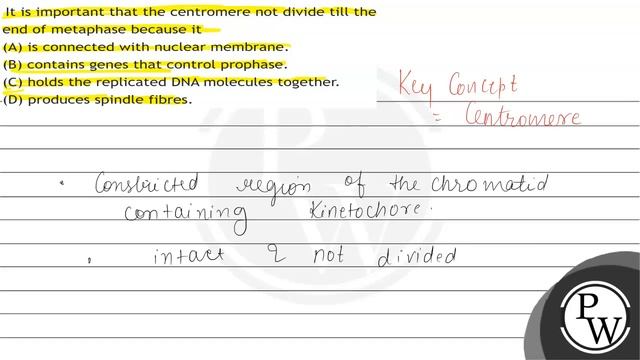 It is important that the centromere not divide till the
end of metaphase because it
(A) is connected with nuclear membrane.
(B) contains genes that control prophase.
(C) holds the replicated DNA molecules together.
(D) produces spindle fibres.
Key Concept
= Centromere
• Constricted region of the chromatid
containing Kinetochore.
• intact & not divided
PW